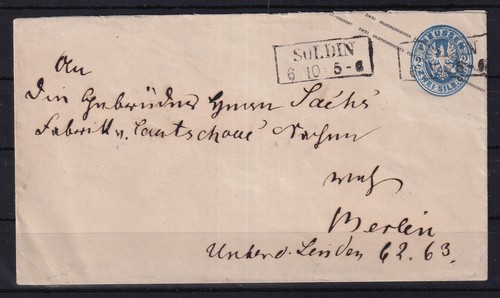 ZWEI SILBERGROSCHEN
PREUSSEN
ZWEI SILB. GR.
SOLDIN
6 10 5-6
An
Die Gebrüder Herren Sachs
Fabrik v. Cautschouc
nach
Berlin
Unter d. Linden 62. 63.